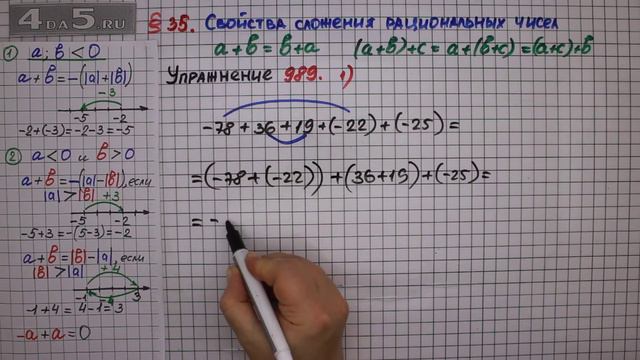 4DA5.RU
§ 35. Свойства сложения рациональных чисел
a+b=b+a (a+b)+c=a+(b+c)=(a+c)+b
Упражнение 989. 1)
-78+36+19+(-22)+(-25)=
=(-78+(-22))+(36+19)+(-25)=
= -
1) a; b < 0
a+b=-(|a|+|b|)
-3
-5 -2
-2+(-3)=-2-3=-5
2) a<0 и b>0
a+b=-(|a|-|b|), если
|a|>|b| +3
-5 -2
-5+3=-(5-3)=-2
a+b=|b|-|a|, если
|b|>|a| +4
-1 3
-1+4=4-1=3
-a+a=0